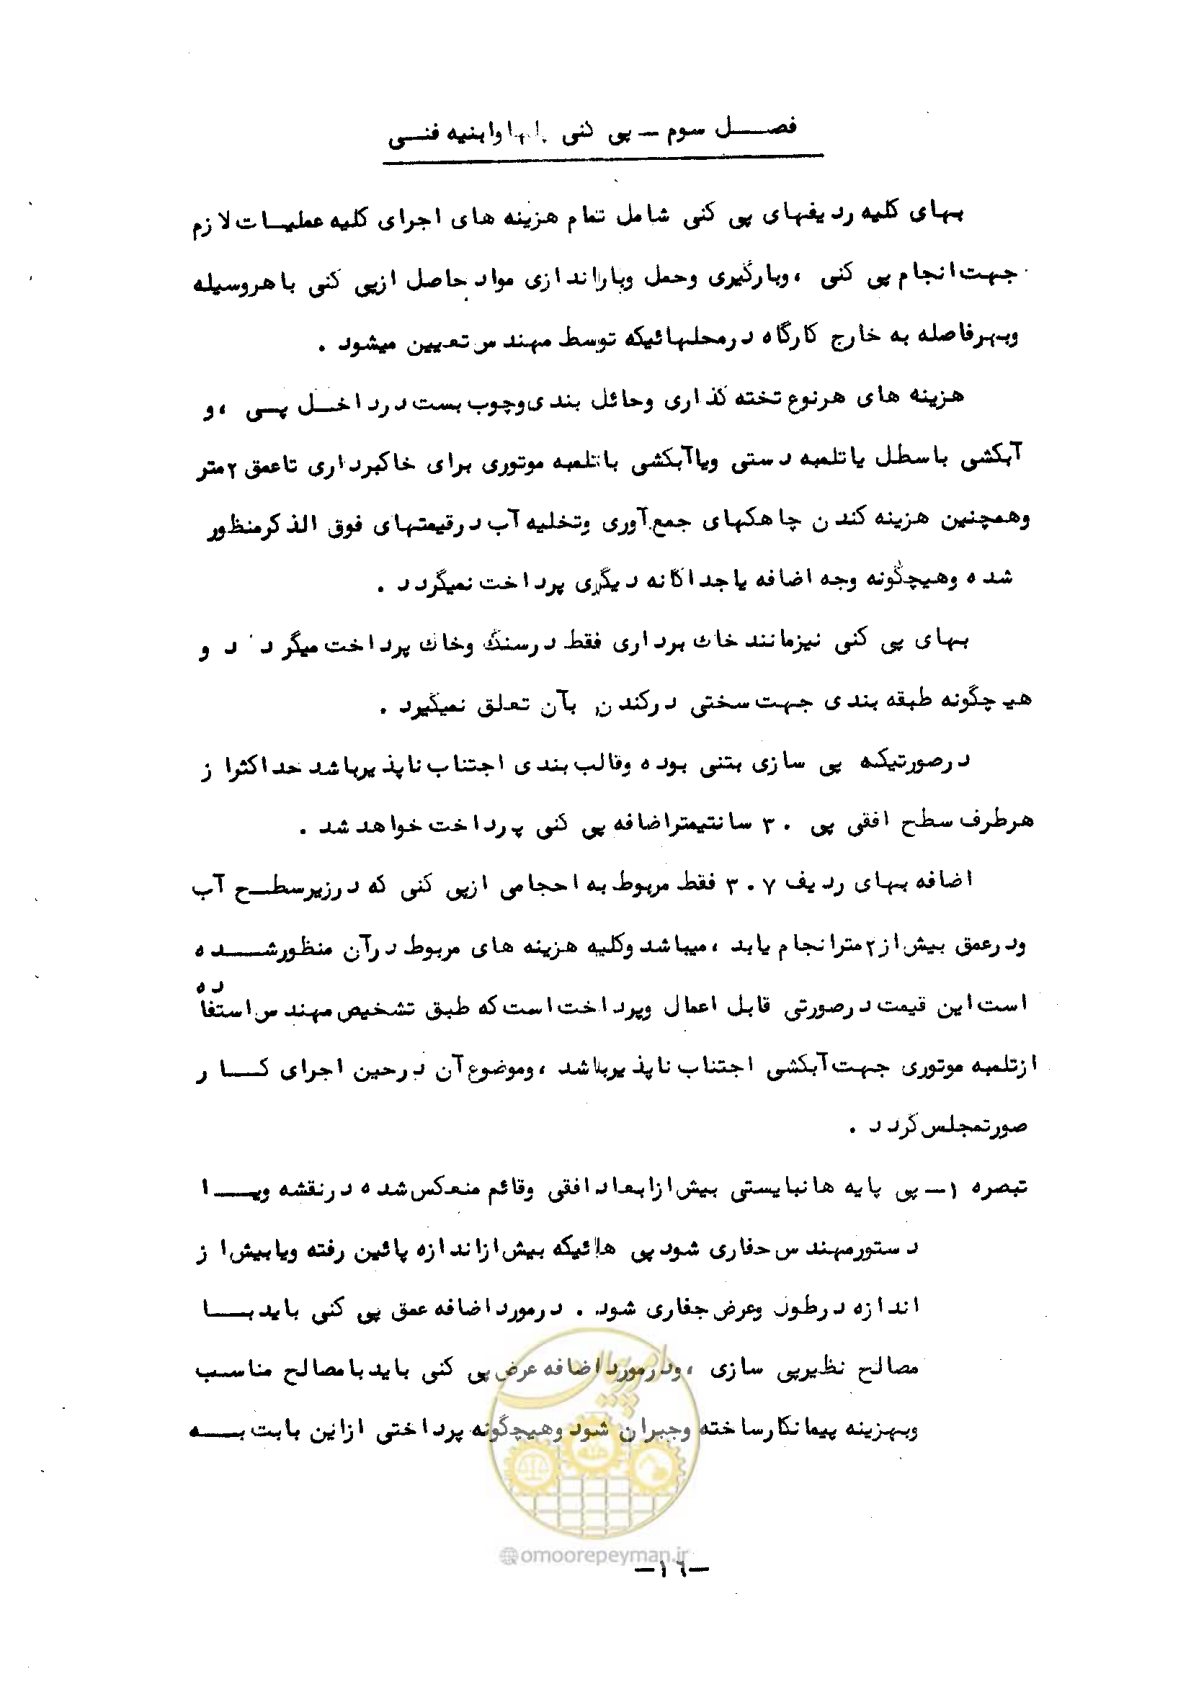 فصل سوم – پی کنی پلها وابنیه فنی
بهای کلیه ردیفهای پی کنی شامل تمام هزینه های اجرای کلیه عملیات لازم
جهت انجام پی کنی ، وبارگیری وحمل وباراندازی مواد حاصل ازپی کنی با هروسیله
وبهرفاصله به خارج کارگاه درمحلهائیکه توسط مهندس تعیین میشود .
هزینه های هرنوع تخته گذاری وحائل بندی وچوب بست درداخل پی ، و
آبکشی با سطل یا تلمبه دستی ویا آبکشی با تلمبه موتوری برای خاکبرداری تا عمق ۲ متر
وهمچنین هزینه کندن چاهکهای جمع آوری وتخلیه آب درقیمتهای فوق الذکرمنظور
شده وهیچگونه وجه اضافه یا جداگانه دیگری پرداخت نمیگردد .
بهای پی کنی نیزمانند خاک برداری فقط درسنگ وخاک پرداخت میگردد و
هیچگونه طبقه بندی جهت سختی درکندن بآن تعلق نمیگیرد .
درصورتیکه پی سازی بتنی بوده وقالب بندی اجتناب ناپذیرباشد حداکثراز
هرطرف سطح افقی پی ۳۰ سانتیمتراضافه پی کنی پرداخت خواهد شد .
اضافه بهای ردیف ۳۰۷ فقط مربوط به احجامی ازپی کنی که درزیرسطح آب
ودرعمق بیش از ۲ مترانجام یابد ، میباشد وکلیه هزینه های مربوط درآن منظورشده
است این قیمت درصورتی قابل اعمال وپرداخت است که طبق تشخیص مهندس استفاده
ازتلمبه موتوری جهت آبکشی اجتناب ناپذیرباشد ، وموضوع آن درحین اجرای کار
صورتمجلس گردد .
تبصره ۱ – پی پایه ها نبایستی بیش ازابعاد افقی وقائم منعکس شده درنقشه ویا
دستورمهندس حفاری شود پی هائیکه بیش ازاندازه پائین رفته ویا بیش از
اندازه درطول وعرض حفاری شود . درمورد اضافه عمق پی کنی باید با
مصالح نظیرپی سازی ، ودرمورد اضافه عرض پی کنی باید با مصالح مناسب
وبهزینه پیمانکارساخته وجبران شود وهیچگونه پرداختی ازاین بابت به
امور پیمان
@omoorepeyman.ir
–۱٦–